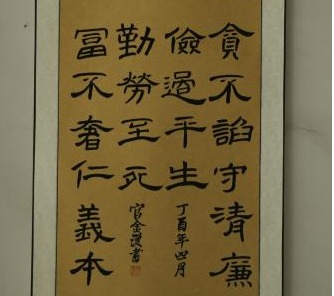 貪不諂守清廉
儉過平生
丁酉年四月
勤勞至死
官金护書
冨不奢仁義本